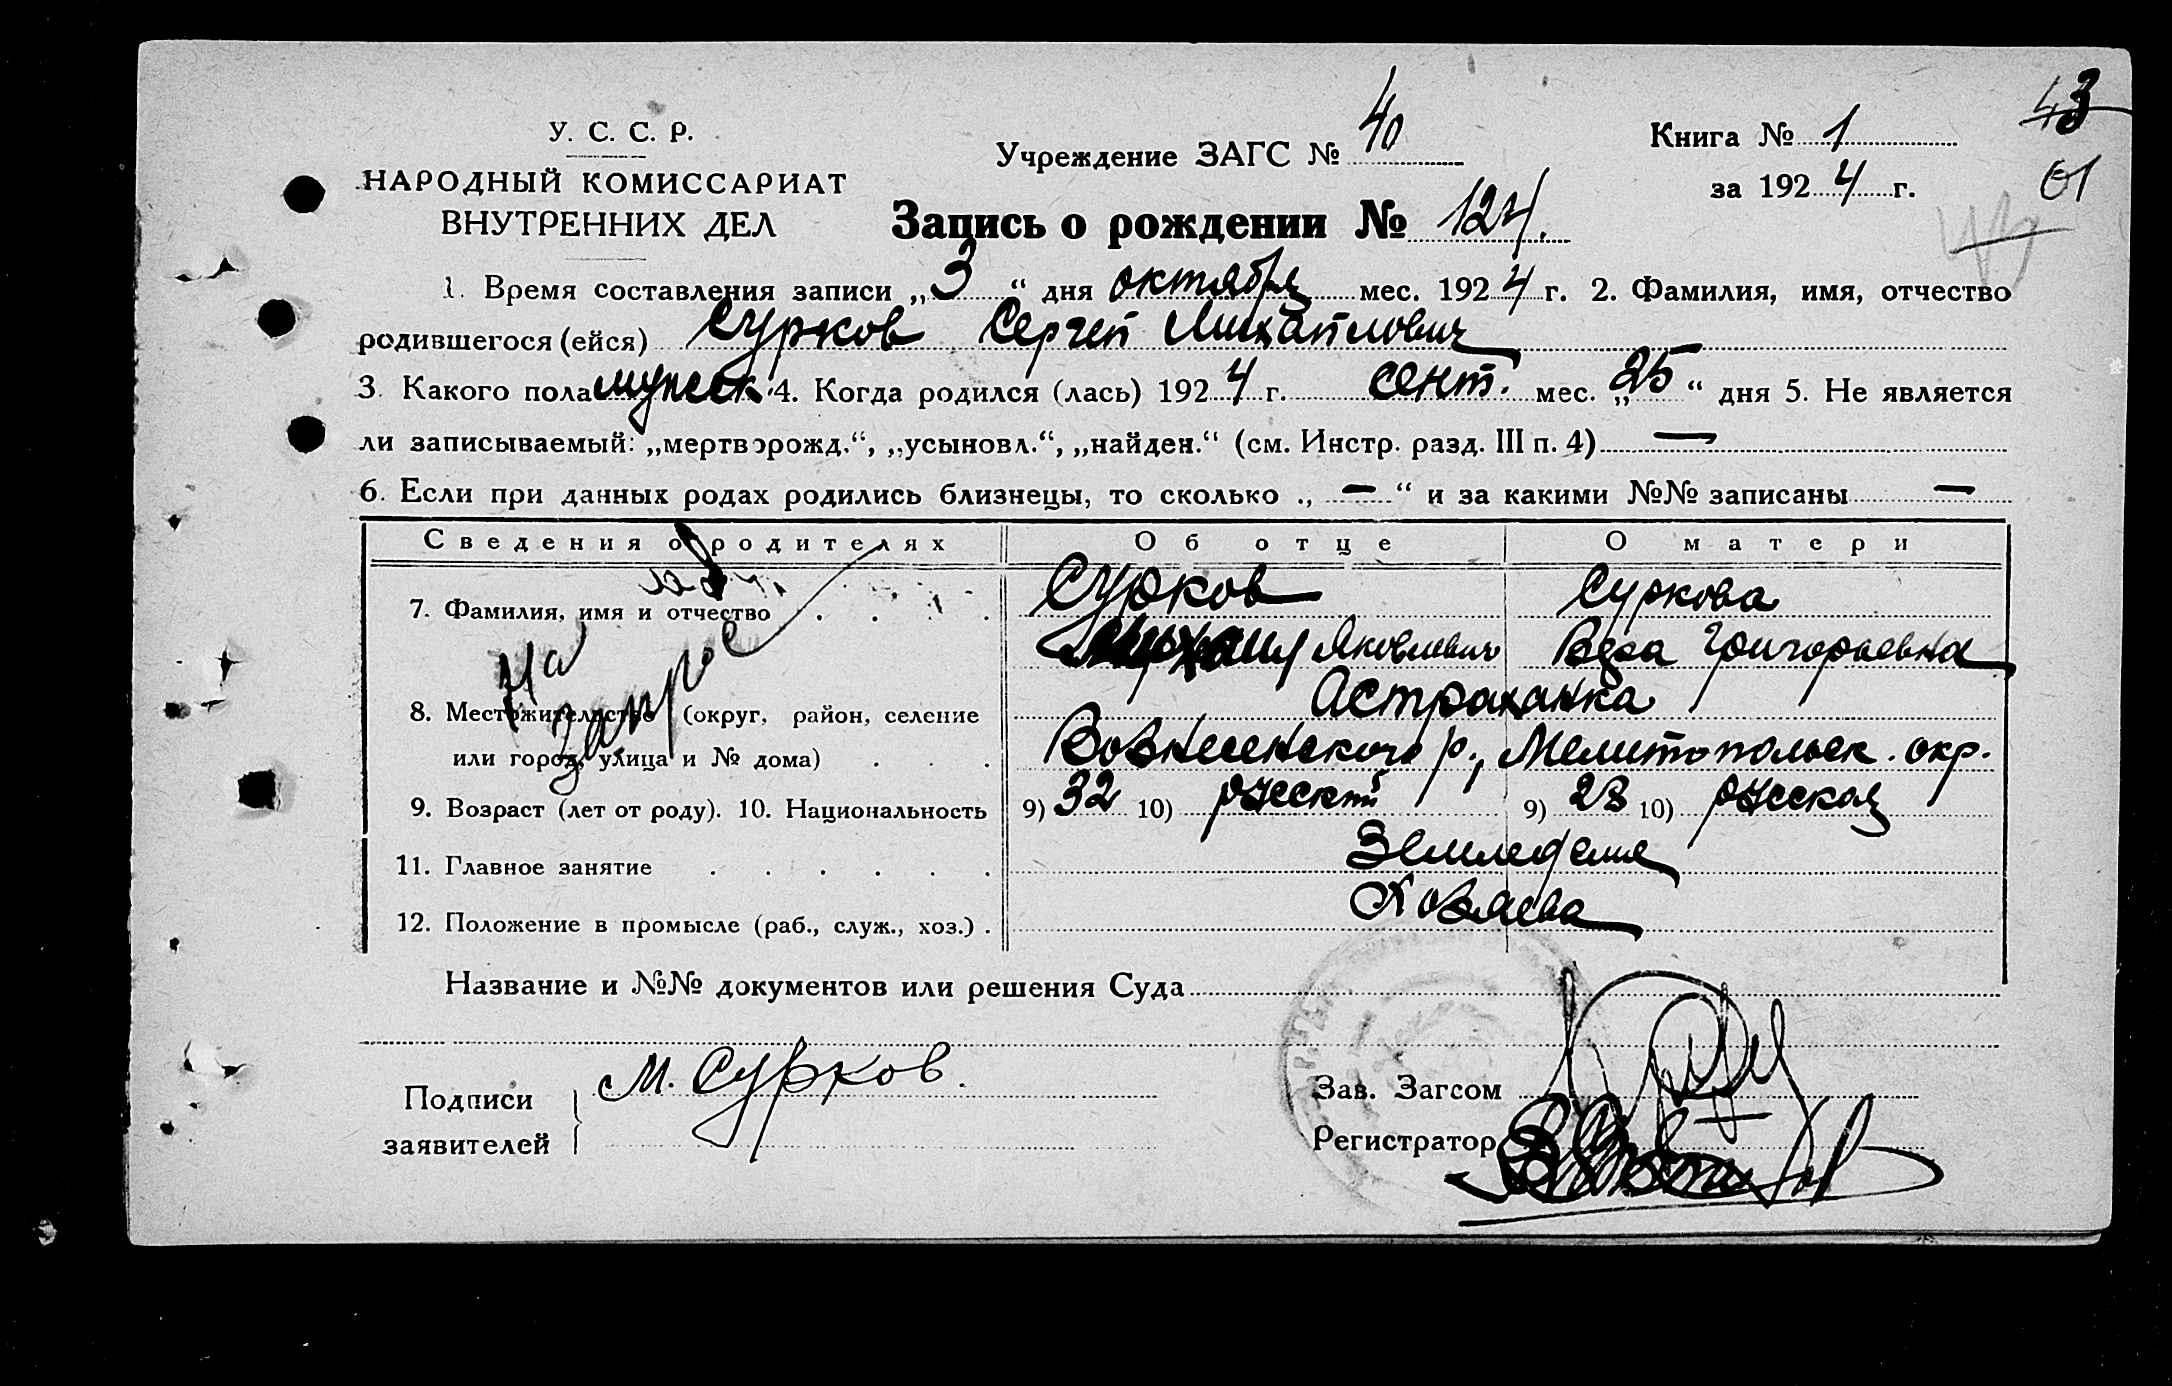 У. С. С. Р.
НАРОДНЫЙ КОМИССАРИАТ
ВНУТРЕННИХ ДЕЛ
Учреждение ЗАГС № 40
Книга № 1
за 1924 г.
43
61
Запись о рождении № 124.
1. Время составления записи „3“ дня октября мес. 1924 г. 2. Фамилия, имя, отчество
родившегося (ейся) Сурков Сергей Михайлович
3. Какого пола мужеск. 4. Когда родился (лась) 1924 г. сент. мес. „25“ дня 5. Не является
ли записываемый: „мертворожд.“, „усыновл.“, „найден.“ (см. Инстр. разд. III п. 4) —
6. Если при данных родах родились близнецы, то сколько „—“ и за какими №№ записаны —
Сведения о родителях Об отце О матери
7. Фамилия, имя и отчество . . . . Сурков Суркова
Михаил Яковлевич Вера Григорьевна
На запрос
8. Местожительство (округ, район, селение Астраханка
или город, улица и № дома) . . . Вознесенского р., Мелитопольск. окр.
9. Возраст (лет от роду). 10. Национальность 9) 32 10) русский 9) 28 10) русская
11. Главное занятие . . . . . . Земледелие
12. Положение в промысле (раб., служ., хоз.) . Хозяева
Название и №№ документов или решения Суда
Подписи
заявителей
М. Сурков.
Зав. Загсом
Регистратор